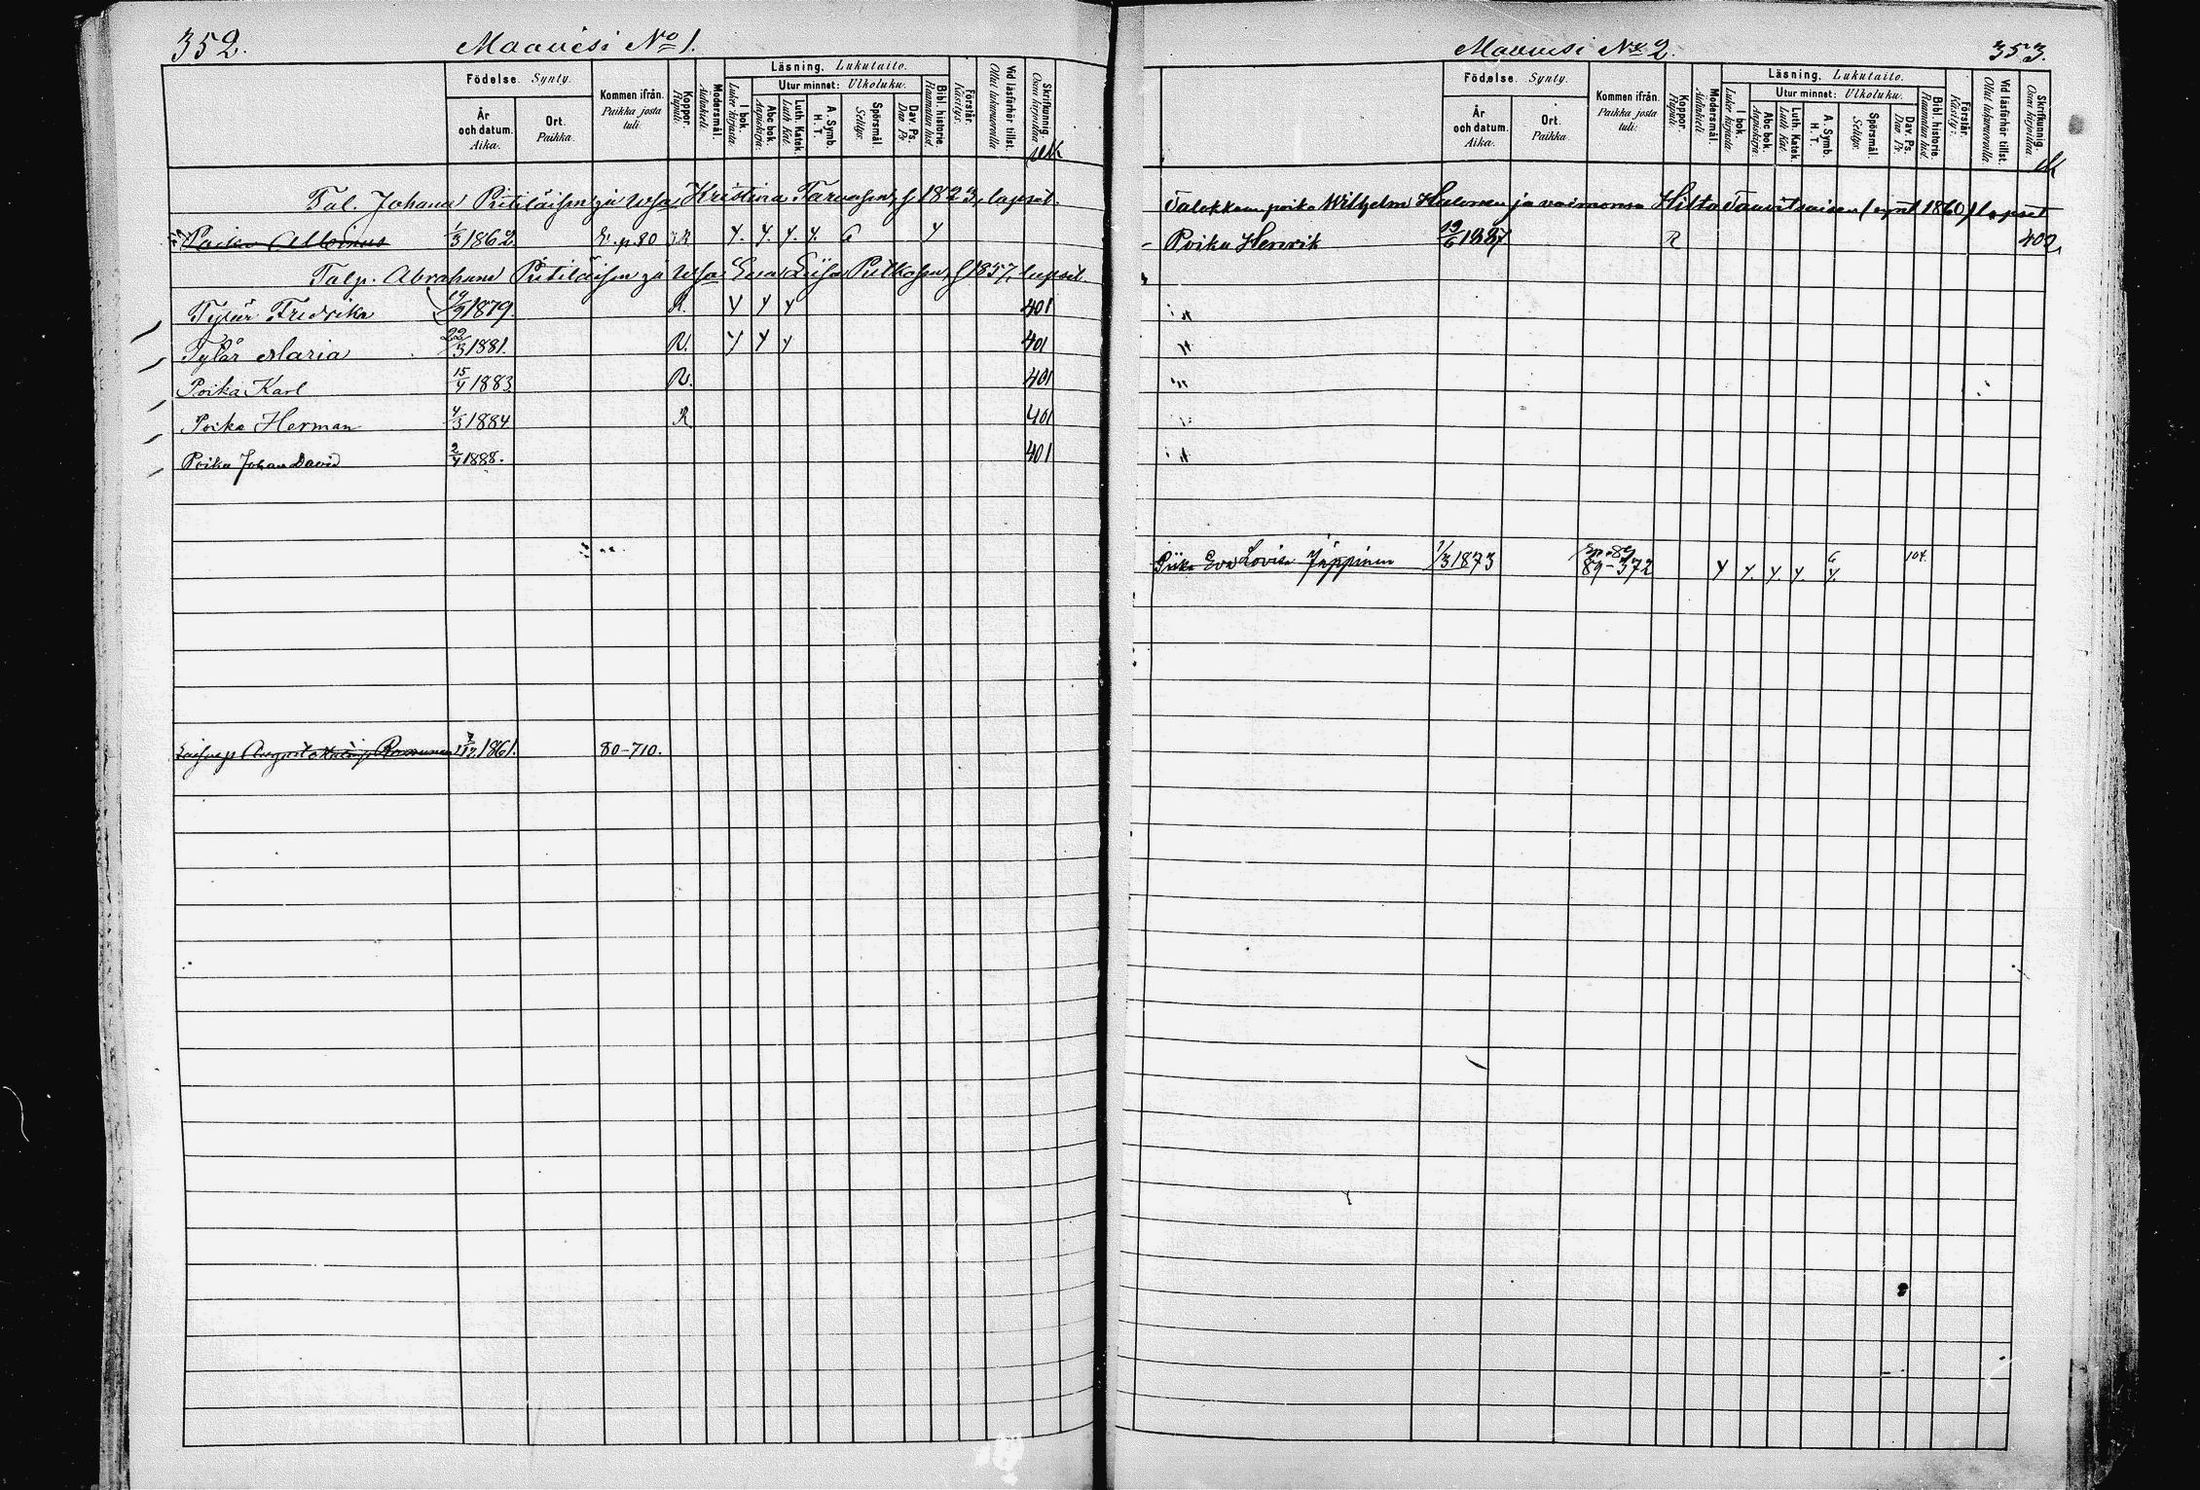 352.
Maavesi No 1.
Födelse. Synty.
Kommen ifrån. Paikka josta tuli.
Koppor. Rupuli.
Modersmål. Äidinkieli.
Läsning. Lukutaito.
I bok. Lukee kirjasta.
Utur minnet: Ulkoluku.
Abc bok. Aapiskirja.
Luth. Katek. Luth Kat.
A. Symb. H. T.
Spörsmål. Selitys.
Dav. Ps. Dav Ps.
Bibl. historie. Raamatun hist.
Förstår. Käsitys.
Vid läsförhör tillst. Ollut lukuvuorolla
Skrifkunnig. Osaa kirjoittaa
År och datum. Aika.
Ort. Paikka.
Tal. Johana Piitiläisen ja Kristina Tarvasen, f 1823, lapset.
Albinus 1/3 1862 R y. y. y. y. a y
Talp. Abraham Piitiläisen ja Eva Liisa Pulkosen, f 1857, lapset.
Tytär Fredrika 19/3 1879 R. y y y 401
Tytär Maria 22/3 1881. R. y y y 401
Poika Karl 15/4 1883 R. 401
Poika Herman 4/3 1884 R 401
Poika Johan David 2/4 1888. 401
Augusta 1861. 80-710.
Maavesi No 2.
353.
Födelse. Synty.
Kommen ifrån. Paikka josta tuli:
Koppor. Rupuli.
Modersmål. Äidinkieli.
Läsning. Lukutaito.
I bok. Lukee kirjasta.
Utur minnet: Ulkoluku.
Abc bok. Aapiskirja.
Luth. Katek. Luth Kat.
A. Symb. H. T.
Spörsmål. Selitys.
Dav. Ps. Dav Ps.
Bibl. historie. Raamatun hist.
Förstår. Käsitys.
Vid läsförhör tillst. Ollut lukuvuorolla
Skrifkunnig. Osaa kirjoittaa
År och datum. Aika.
Ort. Paikka
poika Wilhelm Halonen ja vaimonsa (synt 1860) lapset
Poika Henrik 19/6 1887 R 402
Piika Eva Lovisa Jäppinen 1/3 1873 89-372 y y. y. y. 104.